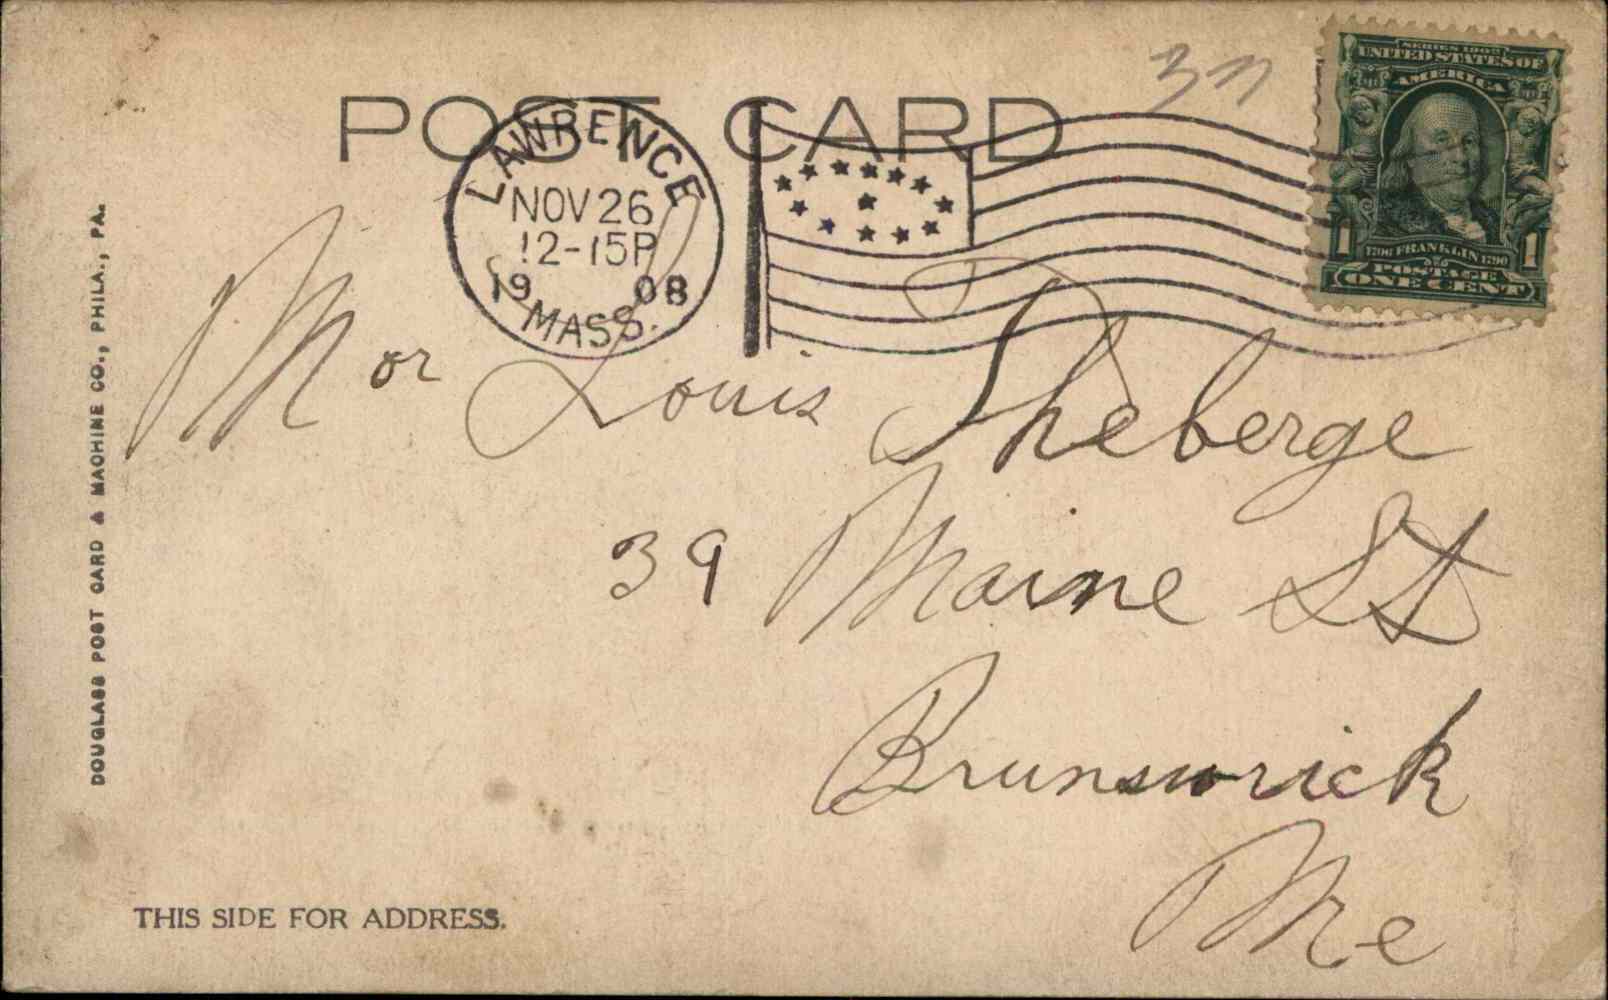 POST CARD
37
SERIES 1902
UNITED STATES OF
AMERICA
1706 FRANKLIN 1790
1 1
POSTAGE
ONE CENT
LAWRENCE
NOV 26
12-15P
1908
MASS.
Mor Louis Sheberge
39 Maine St
Brunswick
Me
DOUGLASS POST CARD & MACHINE CO., PHILA., PA.
THIS SIDE FOR ADDRESS.